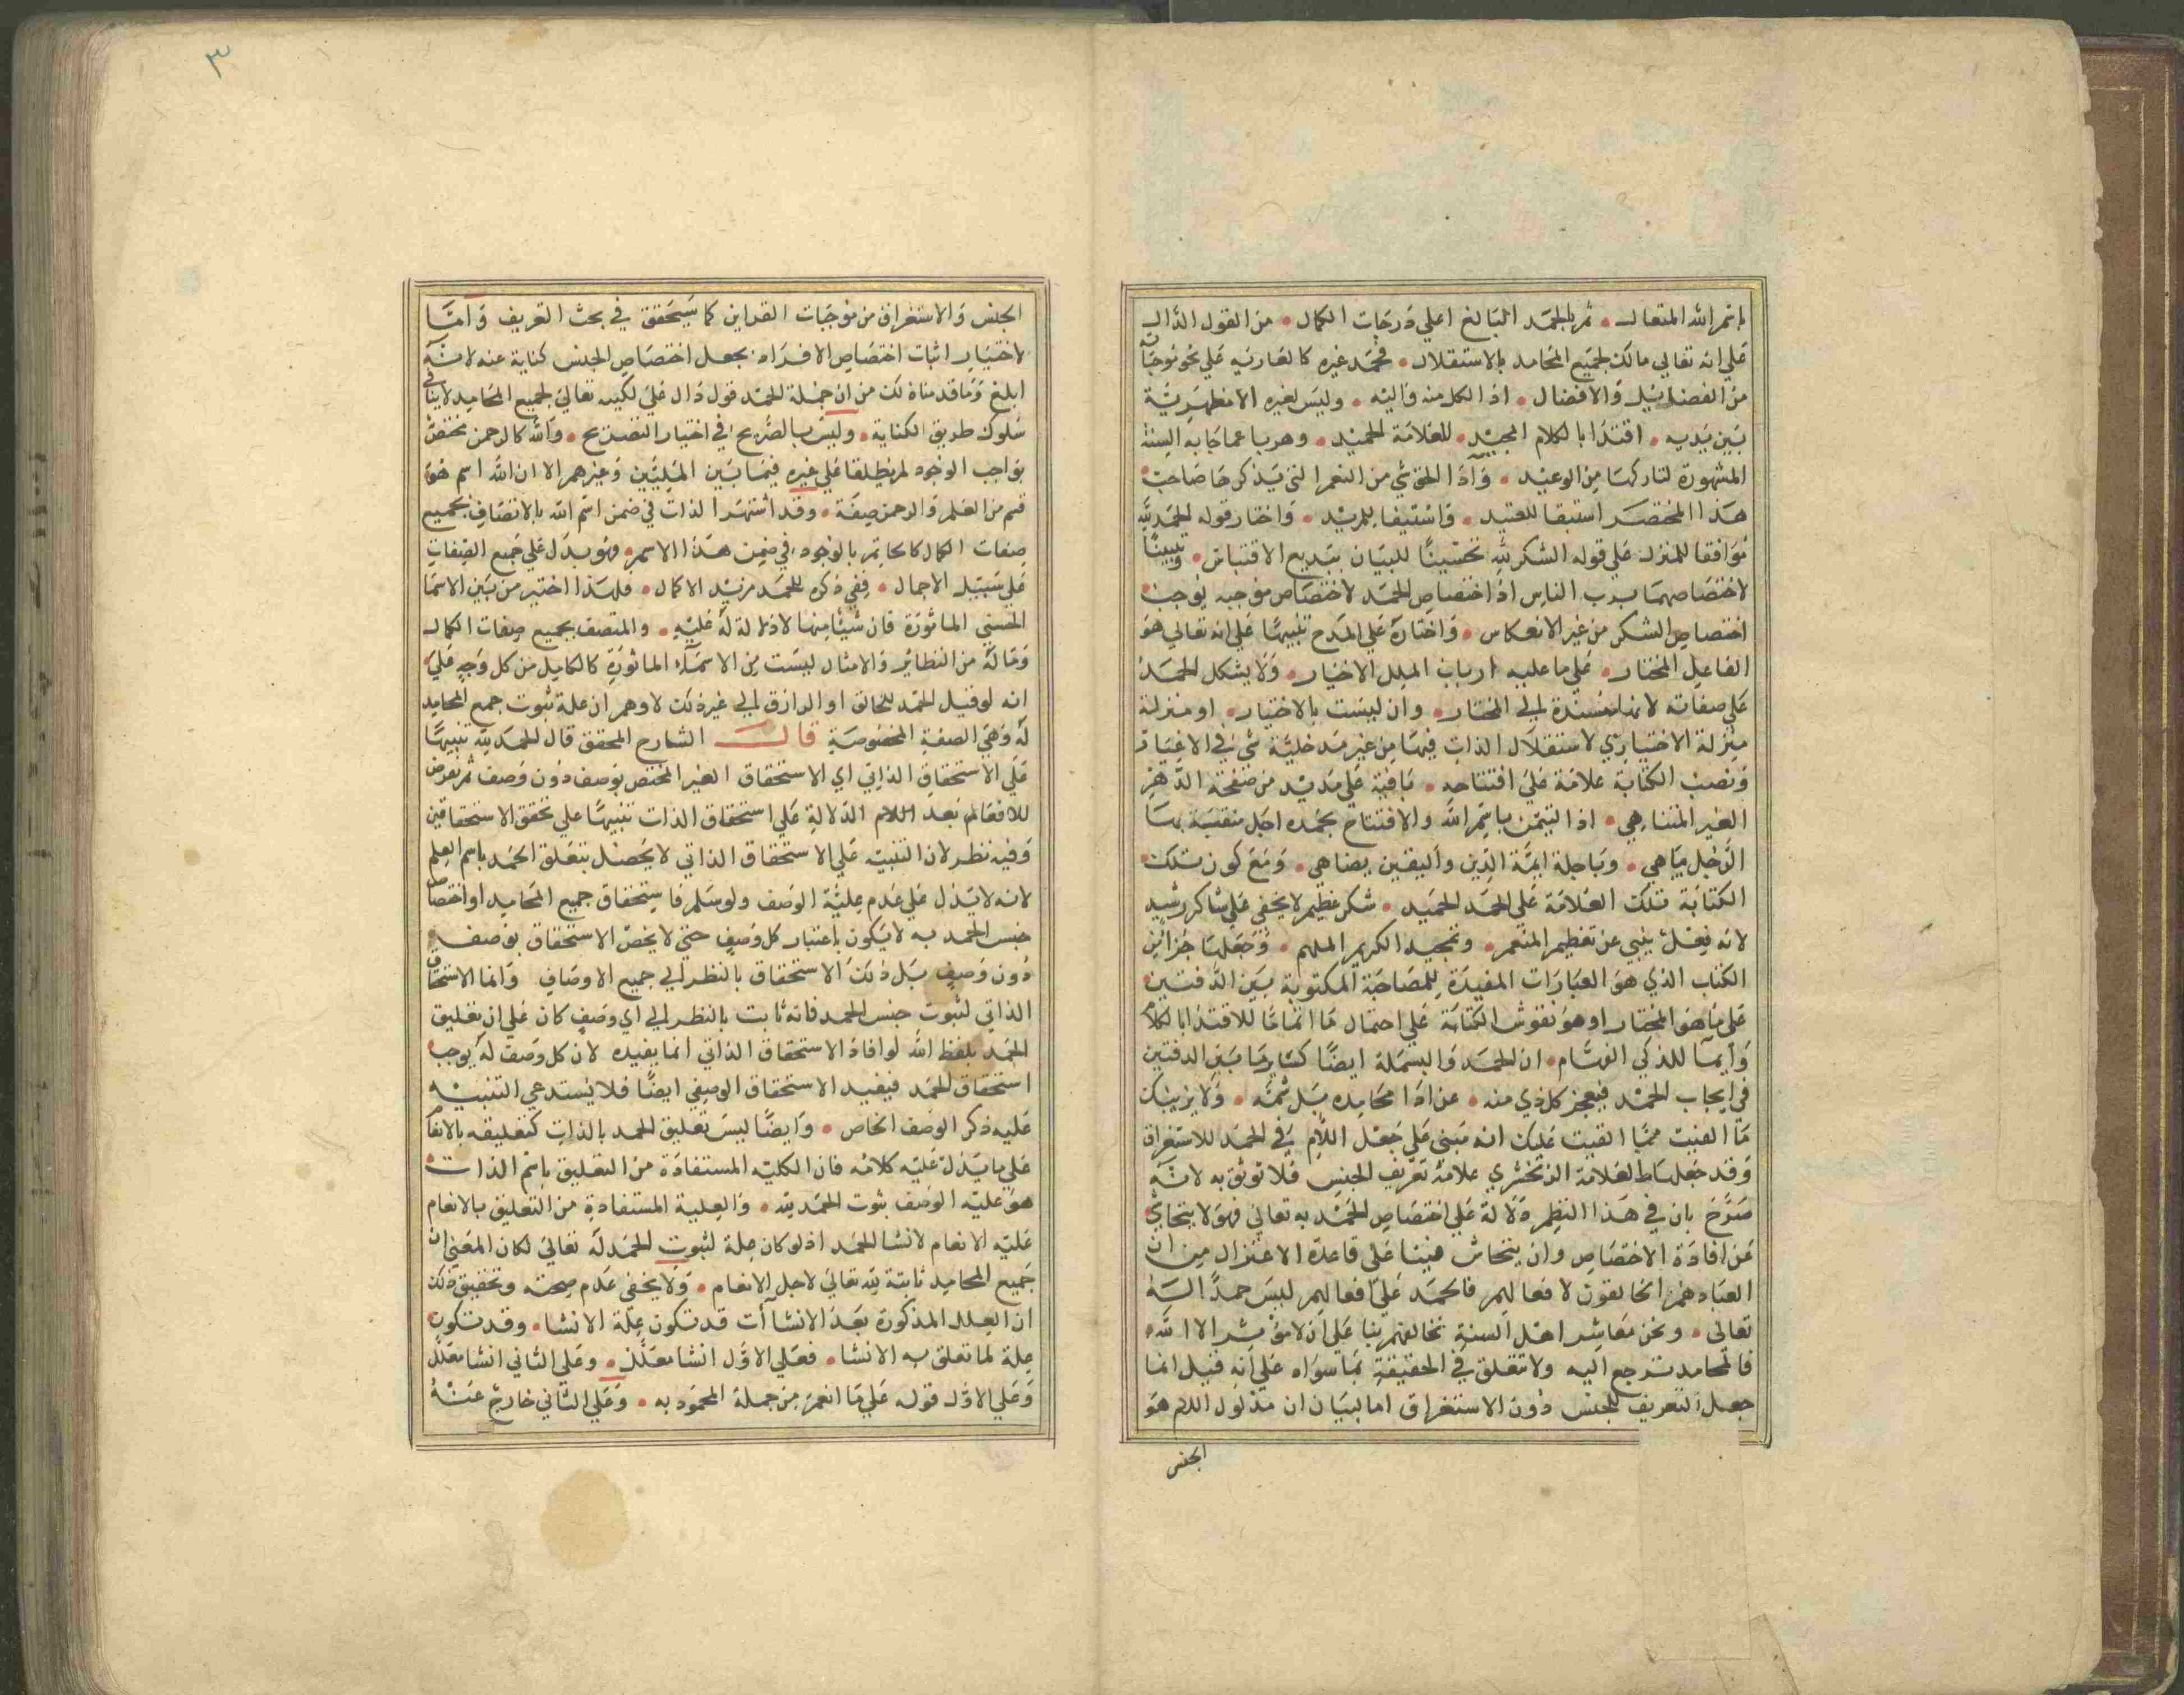 باسم الله المتعال • ثم بالحمد البالغ اعلي درجات الكمال • من القول الدال
علي انه تعالي مالك لجميع المحامد بالاستقلال • فحمد غيره كالعارية علي نحو
من الفضل والافضال • اذ الكل منه واليه • وليس لغيره الا مظهرية
بين يديه • اقتدا بالكلام المجيد • للعلامة الحميد • وهربا عما جا به السنة
المشهورة لتاركها من الوعيد • واذا لحق شي من النعم التي يذكرها صاحب
هذا المختصر استبقا للعتيد • واستيفا للمزيد • واختار قوله الحمد لله
موافقا للمنزل علي قوله الشكر لله تحسينا للبيان ببديع الاقتباس • وتبيينا
لاختصاصهما برب الناس اذ اختصاص الحمد لاختصاص موجبه يوجب
اختصاص الشكر من غير الانعكاس • واختاره علي المدح تنبيها علي انه تعالي هو
الفاعل المختار • علي ما عليه ارباب الملل الاخيار • ولا يشكل الحمد
علي صفاته لانها مسندة الي المختار • وان ليست بالاختيار • او منزلة
منزلة الاختياري لاستقلال الذات فيها من غير مدخلية شي في الاعتبار
ونصب الكتابة علامة علي افتتاحه • باقية علي مديد من صفحة الدهر
الغير المتناهي • اذ التيمن باسم الله والافتتاح بحمده اجل منقبة بها
الرجل يباهي • وباجلة ايمة الدين واليقين يضاهي • ومع كون تلك
الكتابة تلك العلامة علي الحمد الحميد • شكر عظيم لا يخفي علي شاكر رشيد
لانه فعل ينبي عن تعظيم المنعم • وتمجيد الكريم الملهم • وجعلها جزا من
الكتاب الذي هو العبارات المفيدة للمصاحبة المكتوبة بين الدفتين
علي ما هو المختار او هو نقوش الكتابة علي احتمال ما اتماما للاقتدا بالكلام
وايما للذكي الفهام • ان الحمد والبسملة ايضا كساير ما بين الدفتين
في ايجاب الحمد فيعجز كل ذي منه • عن ادا محامده بل ثمنه • ولا يريبك
ما الفيت مما القيت عليك انه مبني علي جعل اللام في الحمد للاستغراق
وقد جعلها العلامة الزمخشري علامة تعريف الجنس فلا توثق به لانه
صرح بان في هذا النظم دلالة علي اختصاص الحمد به تعالي فهو لا يتحاشي
عن افادة الاختصاص وان يتحاش هينا علي قاعدة الاعتزال من ان
العباد هم الخالقون لافعالهم فالحمد علي افعالهم ليس حمدا له
تعالي • ونحن معاشر اهل السنة نخالفهم بنا علي ان لا موثر الا الله
فالمحامد ترجع اليه ولا تتعلق في الحقيقة بما سواه علي انه قيل انما
جعل التعريف للجنس دون الاستغراق اما لبيان ان مدلول اللام هو
الجنس
٣
الجنس والاستغراق من موجبات القراين كما سيتحقق في بحث التعريف واما
لاختيار اثبات اختصاص الافراد بجعل اختصاص الجنس كناية عنه لانه
ابلغ وما قدمناه لك من ان جملة الحمد قول دال علي لكيه تعالي لجميع المحامد لا ينافي
سلوك طريق الكناية • وليس بالصريح في اختيار التصريح • والله كالرحمن مختص
بواجب الوجود لم يطلقا علي غيره فيما بين المليين وغيرهم الا ان الله اسم هو
قسم من العلم والرحمن صفة • وقد اشتهر الذات في ضمن اسم الله بالاتصاف بجميع
صفات الكمال كحاتم بالوجود في ضمن هذا الاسم فهو يدل علي جميع الصفات
علي سبيل الاجمال • ففي ذكره للحمد مزيد الاكمال • فلهذا اختير من بين الاسما
الحسني الماثورة فان شيئا منها لا دلالة له عليه • والمتصف بجميع صفات الكمال
وماله من النظاير والامثال ليست من الاسماء الماثورة كالكامل من كل وجه علي
انه لو قيل الحمد للخالق او الرازق الي غير ذلك لاوهم ان علة ثبوت جميع المحامد
له وهي الصفة المخصوصة قال الشارح المحقق قال الحمد لله تنبيها
علي الاستحقاق الذاتي اي الاستحقاق الغير المختص بوصف دون وصف ثم تعرض
للافعام بعد اللام الدلالة علي استحقاق الذات تنبيها علي تحقق الاستحقاقين
وفيه نظر لان التنبيه علي الاستحقاق الذاتي لا يحصل بتعلق الحمد باسم العلم
لانه لا يدل علي عدم علية الوصف ولو سلم فاستحقاق جميع المحامد او اختصاص
جنس الحمد به لا يكون باعتبار كل وصف حتي لا يخص الاستحقاق بوصف
دون وصف بل ذلك الاستحقاق بالنظر الي جميع الاوصاف وانما الاستحقاق
الذاتي لثبوت جنس الحمد فانه ثابت بالنظر الي اي وصف كان علي ان تعليق
الحمد بلفظ الله لو افاد الاستحقاق الذاتي انما يفيده لان كل وصف له يوجب
استحقاق الحمد فيفيد الاستحقاق الوصفي ايضا فلا يستدعي التنبيه
عليه ذكر الوصف الخاص • وايضا ليس تعليق الحمد بالذات كتعليقه بالانعام
علي ما يدل عليه كلامه فان الكلية المستفادة من التعليق باسم الذات
هو علية الوصف بثوت الحمد لله • والعلية المستفادة من التعليق بالانعام
علية الانعام لانشا الحمد اذ لو كان علة لثبوت الحمد له تعالي لكان المعني ان
جميع المحامد ثابتة لله تعالي لاجل الانعام • ولا يخفي عدم صحته وتحقيق ذلك
ان العلل المذكورة بعد الانشاآت قد تكون علة الانشا • وقد تكون
علة لما تعلق به الانشا • فعلي الاول انشا معلل • وعلي الثاني انشا معلل
وعلي الاول قوله علي ما انعم من جملة المحمود به • وعلي الثاني خارج عنه